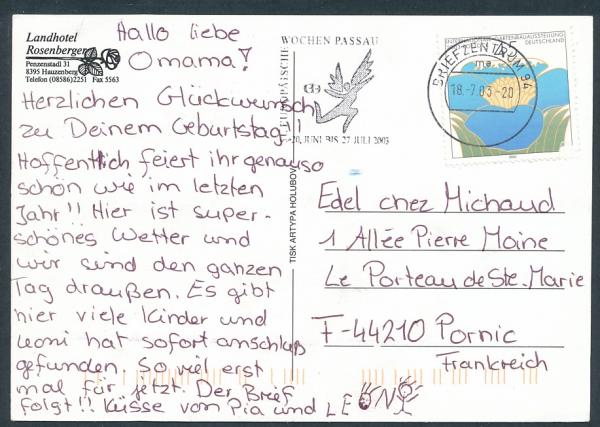 Landhotel
Rosenberger
Penzenstadl 31
8395 Hauzenberg
Telefon (08586)2251 Fax 5563
Hallo liebe
Omama!
Herzlichen Glückwunsch
zu Deinem Geburtstag!!
Hoffentlich feiert ihr genauso
schön wie im letzten
Jahr!! Hier ist super-
schönes Wetter und
wir sind den ganzen
Tag draußen. Es gibt
hier viele Kinder und
Leoni hat sofort anschluß
gefunden. So viel erst
mal für jetzt. Der Brief
folgt!! Küsse von Pia und LEONI
TISK ARTYPA HOLUBOV
EUROPÄISCHE WOCHEN PASSAU
20. JUNI BIS 27 JULI 2003
BRIEFZENTRUM 94
18.-7.03-20
DEUTSCHLAND
Edel chez Michaud
1 Allée Pierre Moine
Le Porteau de Ste. Marie
F-44210 Pornic
Frankreich